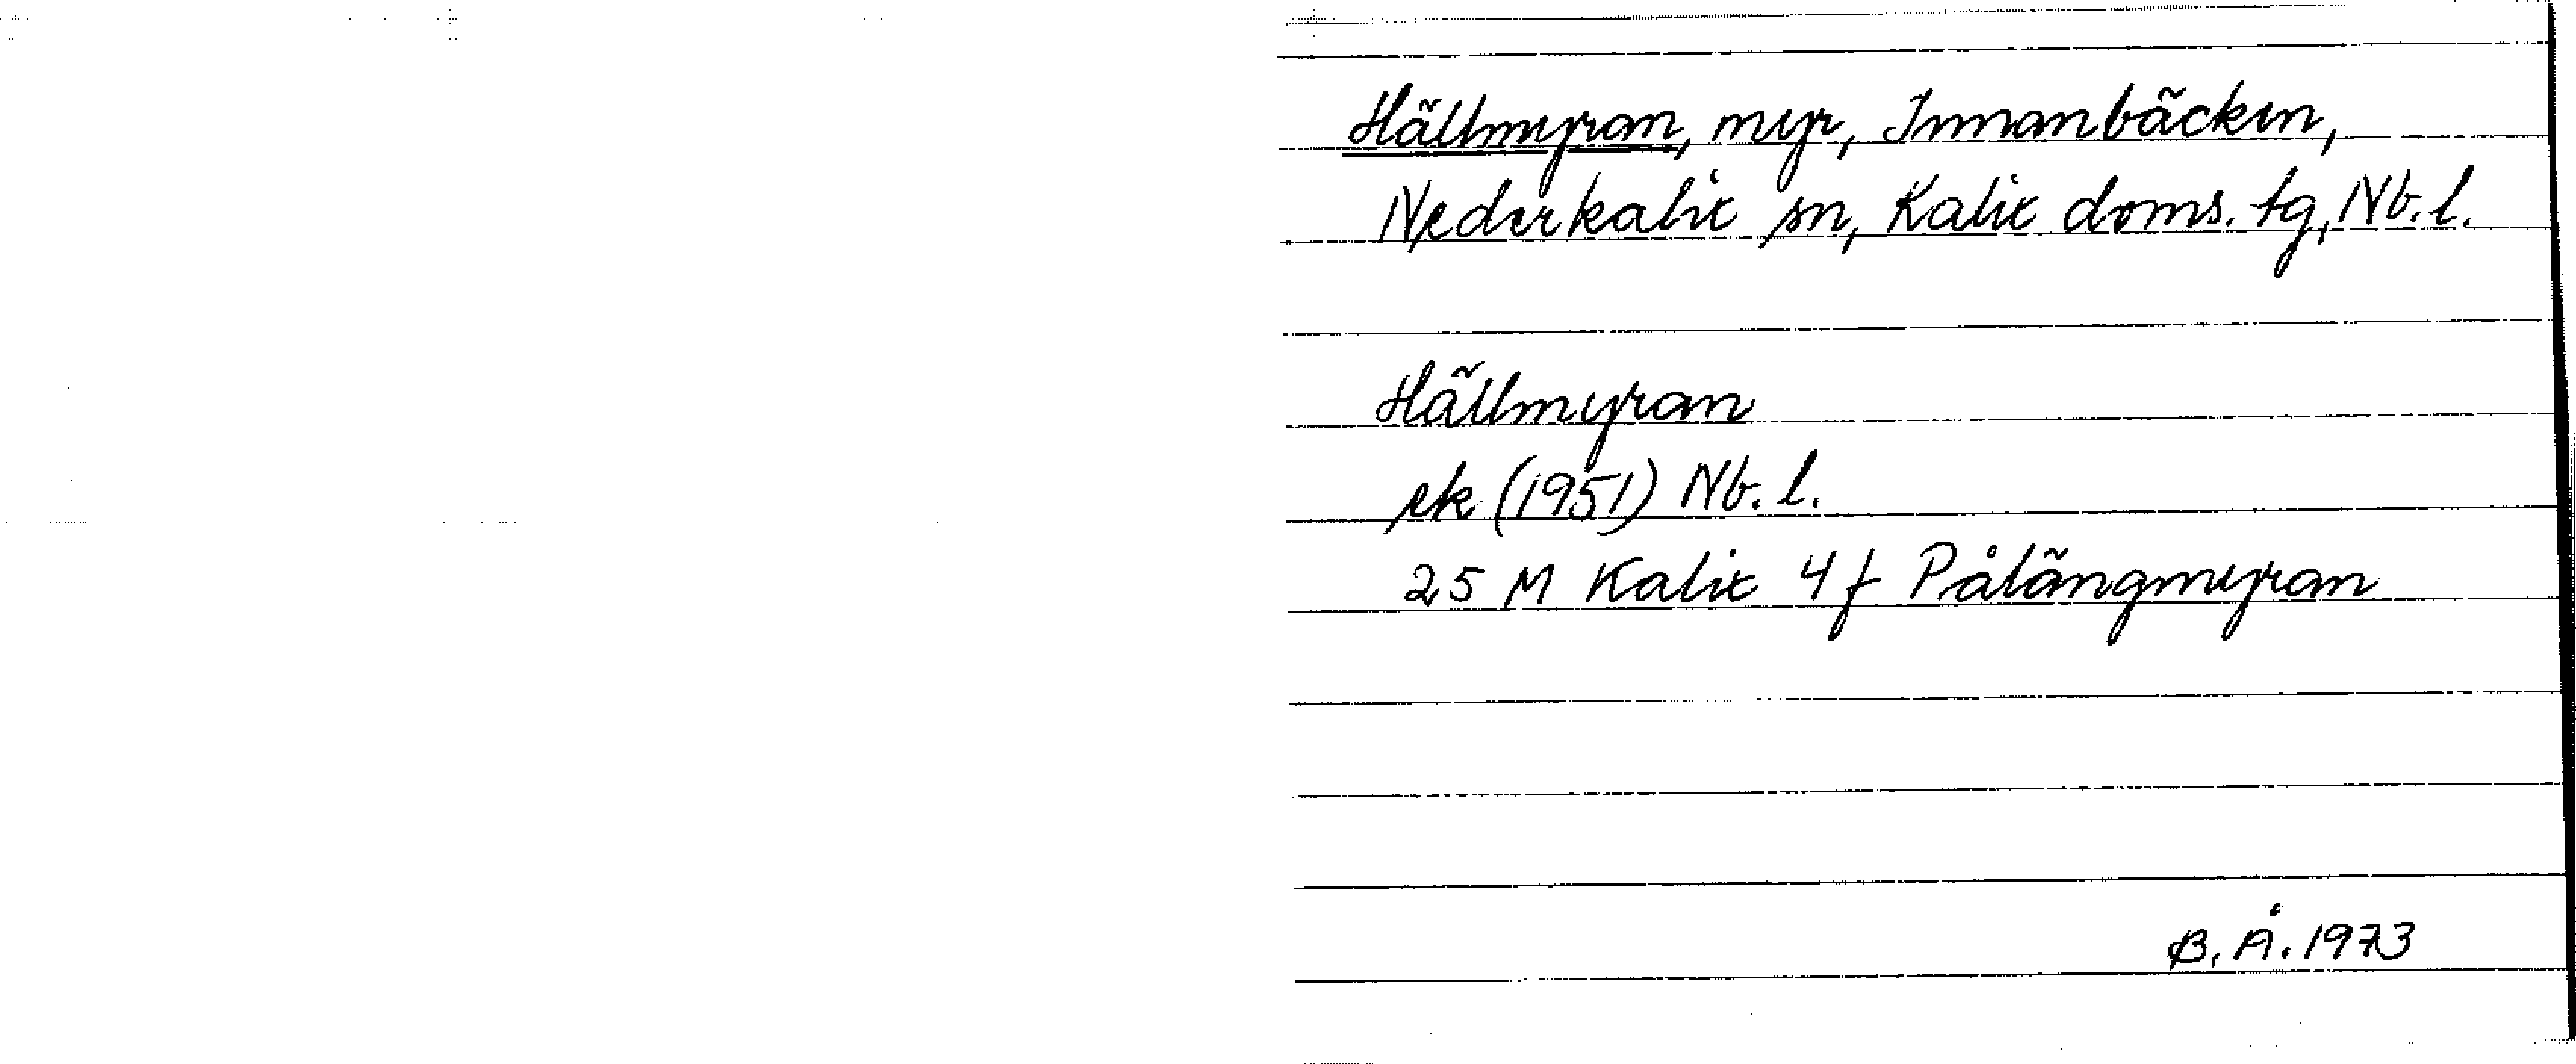 Hällmyran, myr, Innanbäcken,
Nederkalix sn, Kalix doms. tg, Nb. l.
Hällmyran
ek (1951) Nb. l.
25 M Kalix 4 f Pålängmyran
B. Å. 1973